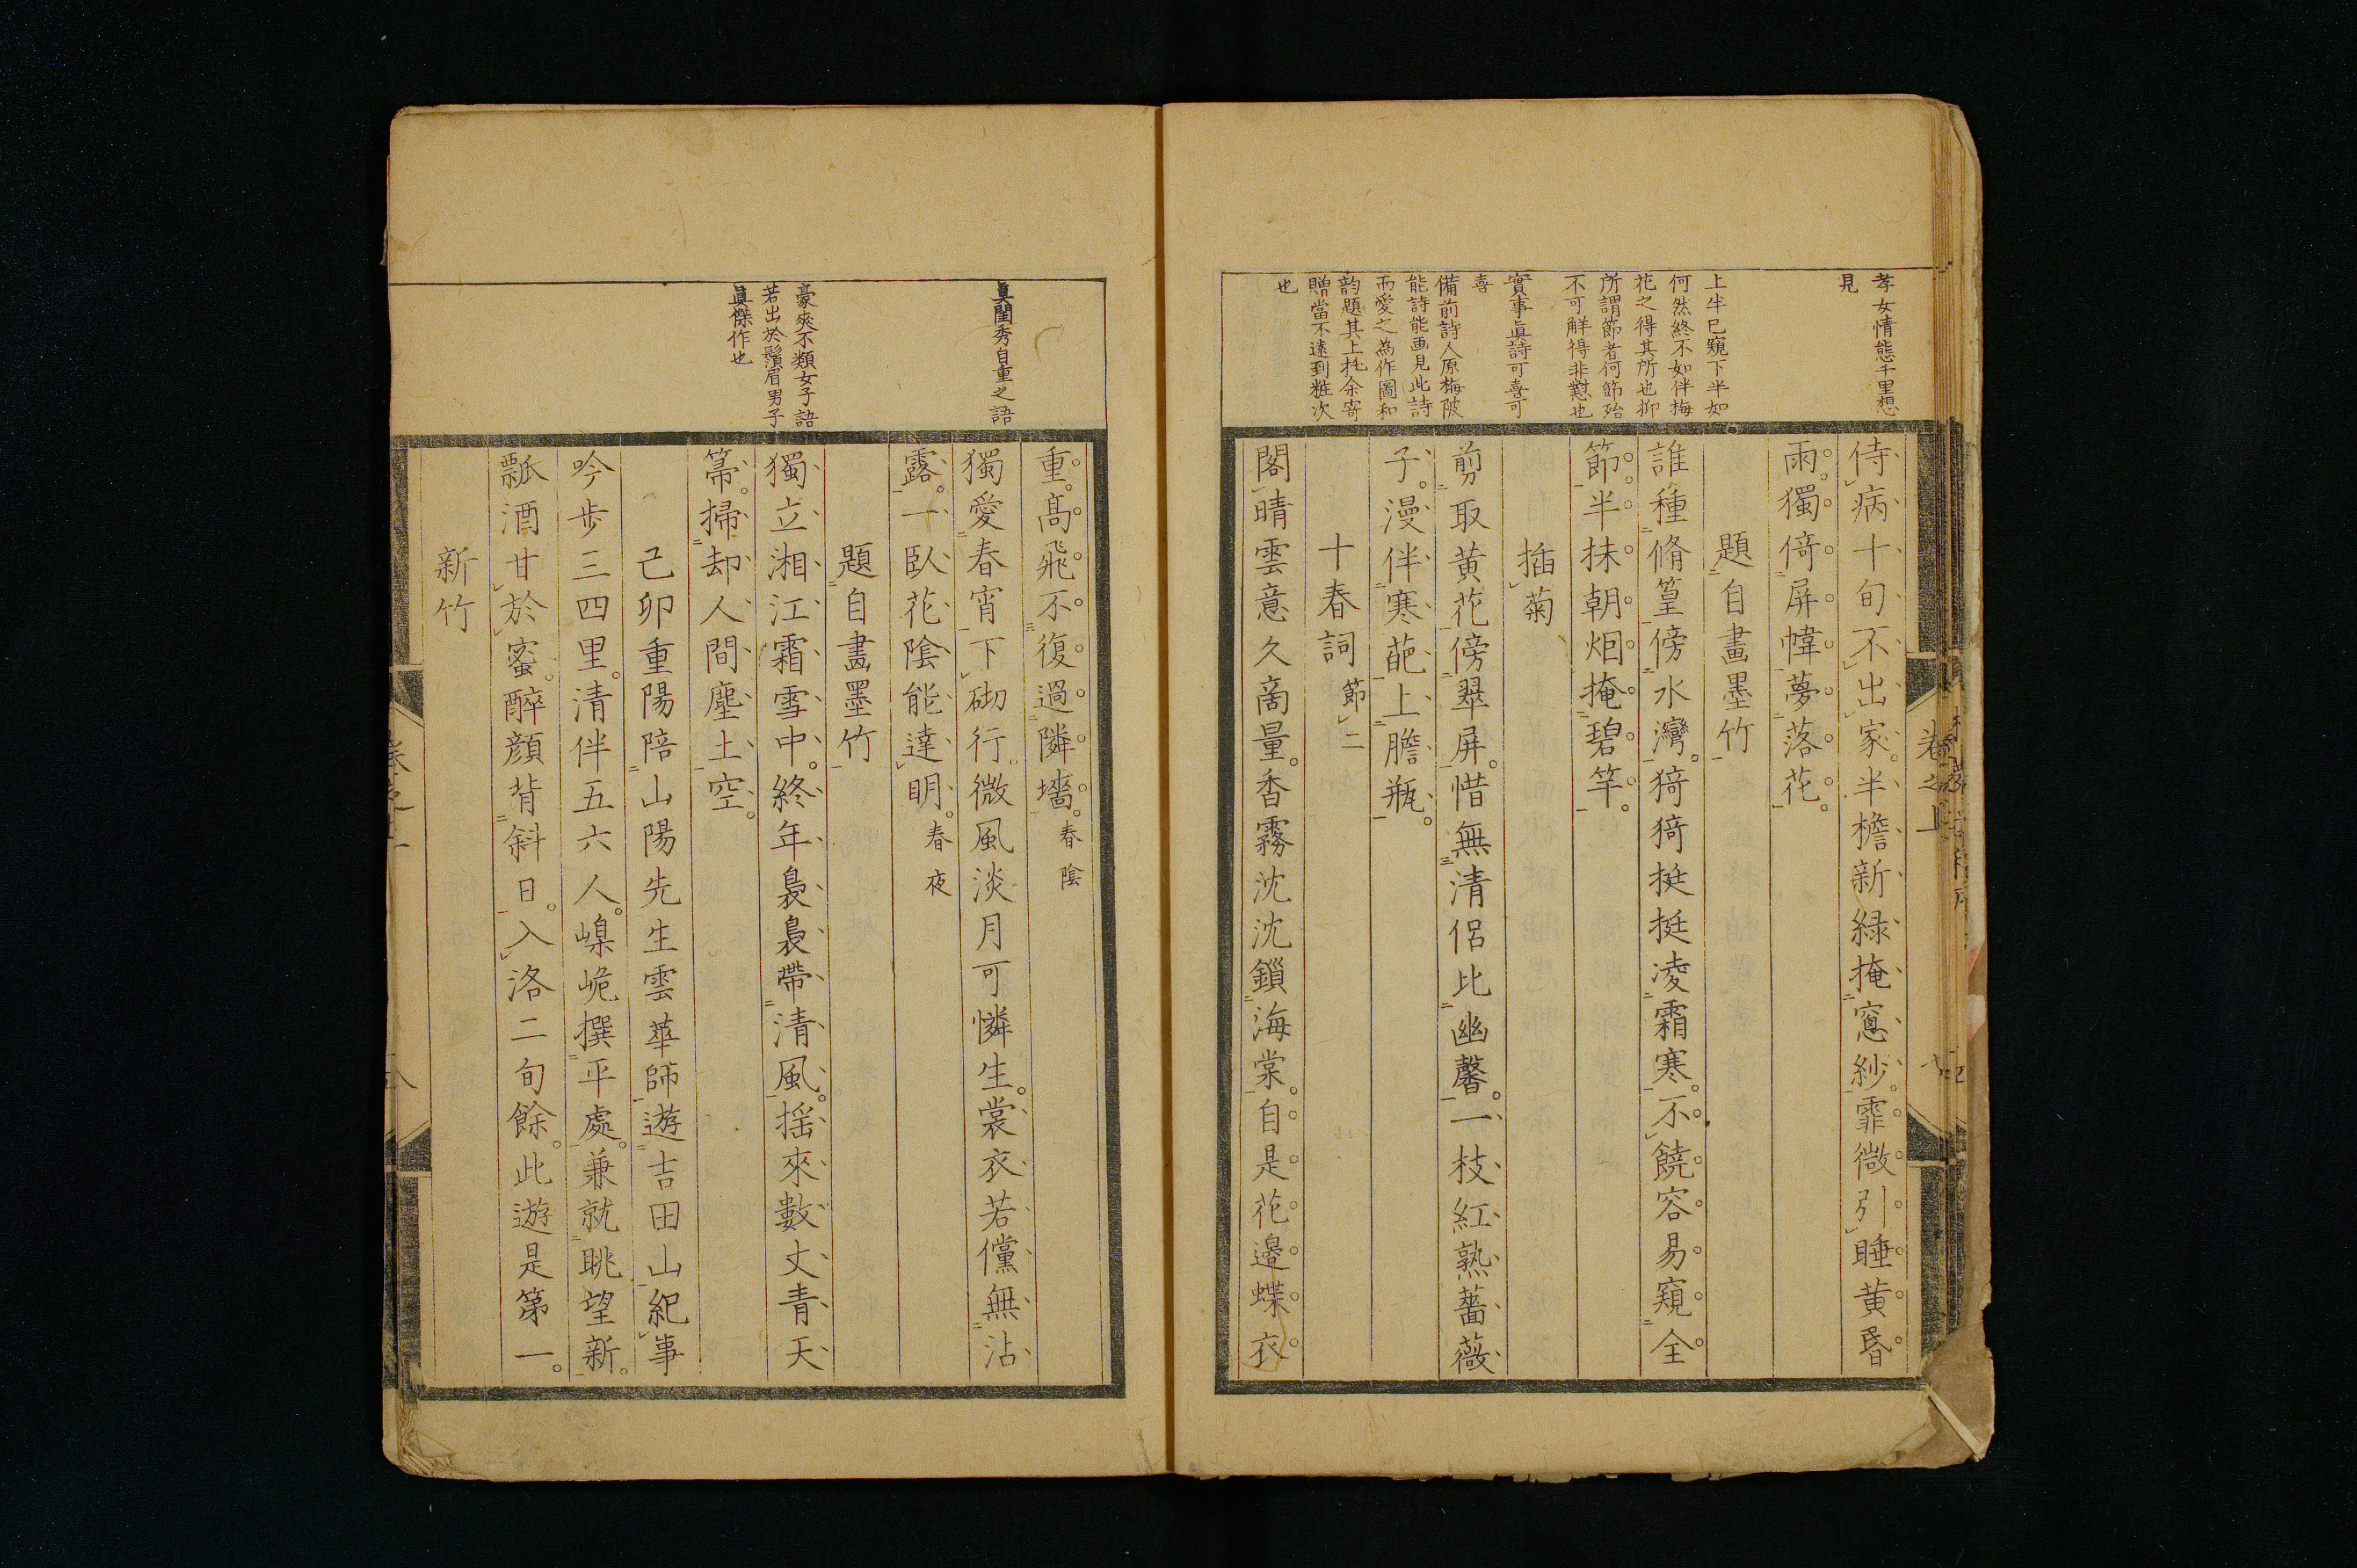 孝女情態千里想
見
上半已窺下半如
何然終不如伴梅
花之得其所也抑
所謂節者何節殆
不可觧得非懟也
實事眞詩可喜可
喜
備前詩人原梅陂
能詩能画見此詩
而愛之為作圖和
韵題其上托余寄
贈當不遠到粧次
也
侍病十旬不出家半檐新緑掩窻紗霏微引睡黄昏
雨獨倚屏幃夢落花
題自畫墨竹
誰種脩篁傍水灣猗猗挺挺凌霜寒不饒容易窺全
節半抹朝烟掩碧竿
插菊
剪取黄花傍翠屏惜無清侶比幽馨一枝紅熟薔薇
子漫伴寒葩上膽瓶
十春詞節二
閣晴雲意久商量香霧沈沈鎖海棠自是花邉蝶衣
眞閨秀自重之語
豪爽不類女子語
若出於鬚眉男子
眞傑作也
重髙飛不復過隣墻春陰
獨愛春宵下砌行微風淡月可憐生裳衣若儻無沾
露一臥花陰能達明春夜
題自畫墨竹
獨立湘江霜雪中終年裊裊帶清風揺來數丈青天
箒掃却人間塵土空
己卯重陽陪山陽先生雲華師遊吉田山紀事
吟歩三四里清伴五六人嵲峗撰平處兼就眺望新
瓢酒甘於蜜醉顔背斜日入洛二旬餘此遊是第一
新竹